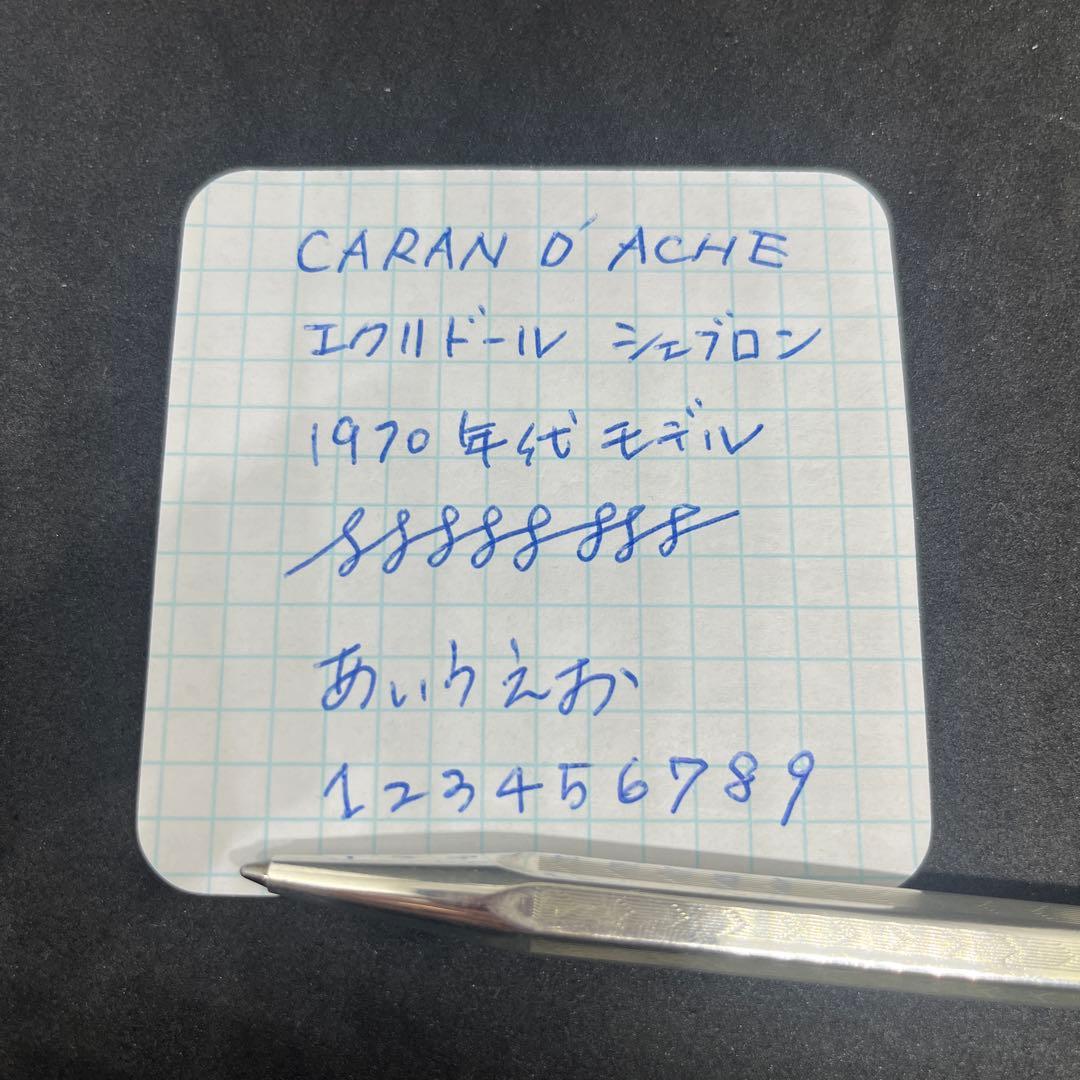 CARAN D'ACHE
エクリドール シェブロン
1970年代モデル
あいうえお
123456789